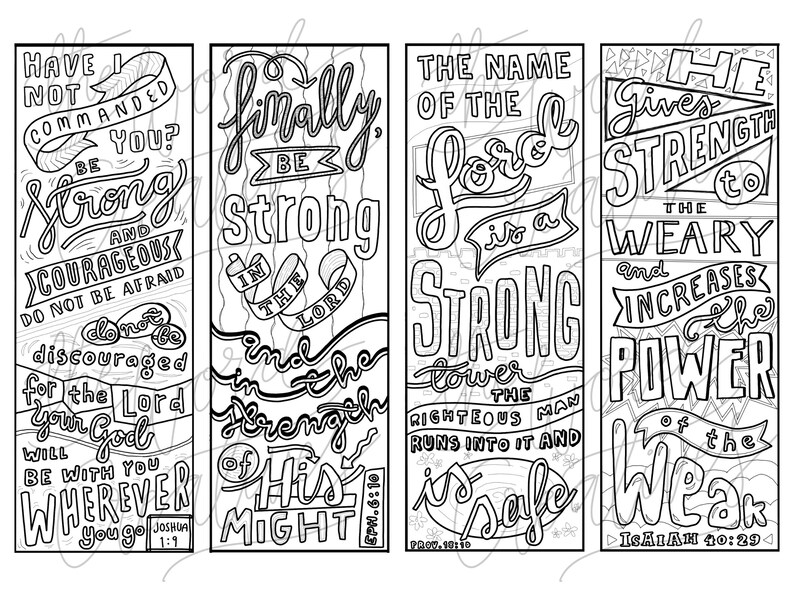 HAVE I
NOT
COMMANDED
YOU?
BE
Strong
AND
COURAGEOUS
DO NOT BE AFRAID
do not be
discouraged
for the Lord
your God
WILL
BE WITH YOU
WHEREVER
you go
JOSHUA
1:9
finally,
BE
Strong
IN
THE
LORD
and
in the
strength
of His
MIGHT
EPH. 6:10
THE NAME
OF THE
Lord
is a
STRONG
tower
THE
RIGHTEOUS MAN
RUNS INTO IT AND
is
safe
PROV. 18:10
HE
Gives
STRENGTH
to
THE
WEARY
and
INCREASES
the
POWER
of the
Weak
ISAIAH 40:29